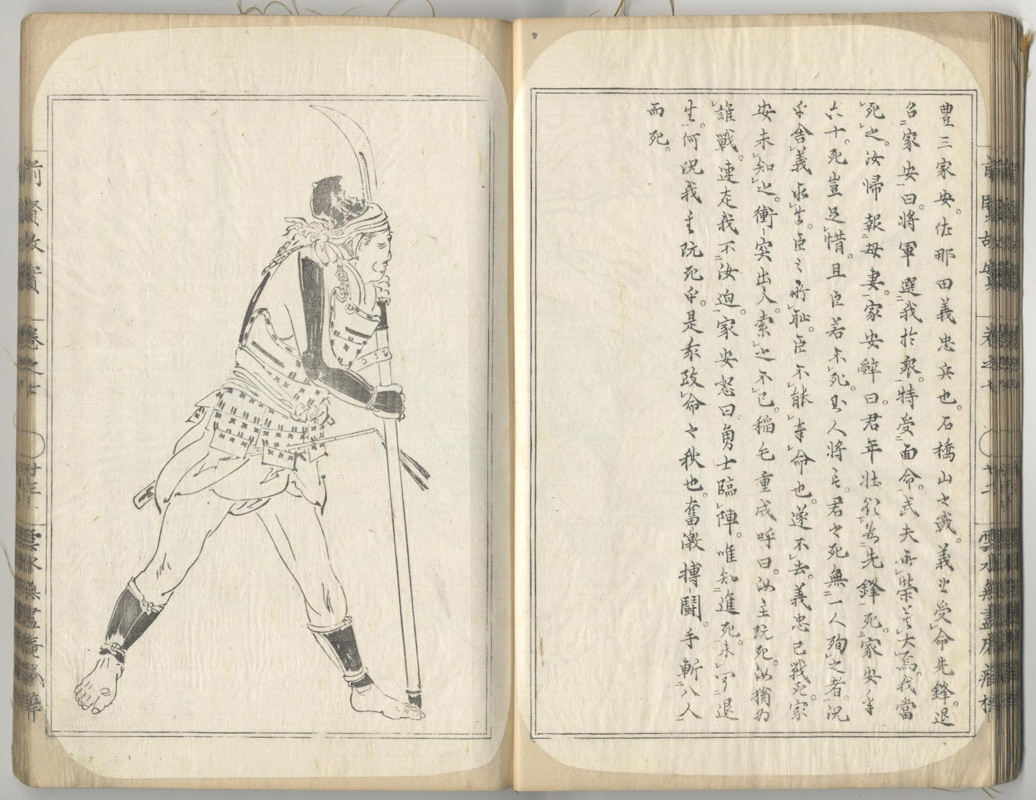 豊三家安佐那田義忠兵也石橋山之戦義忠受命先鋒退
召家安曰将軍選我於衆特受面命武夫所栄莫大焉我当
死之汝帰報母妻家安辞曰君年壮欲為先鋒死家安年
六十死豈足惜且臣若不死人将言君之死無一人殉之者況
乎舎義求生臣之所恥臣不能奉命也遂不去義忠已戦死家
安未知之衝突出入索之不已稲毛重成呼曰汝主既死汝猶為
誰戦速走我不汝迫家安怒曰勇士臨陣唯知進死未学退
生何況我主既死乎是委致命之秋也奮激搏闘手斬八人
而死
前賢故実
巻之七
雲水無尽庵蔵梓
前賢故実
巻之七
雲水無尽庵蔵梓